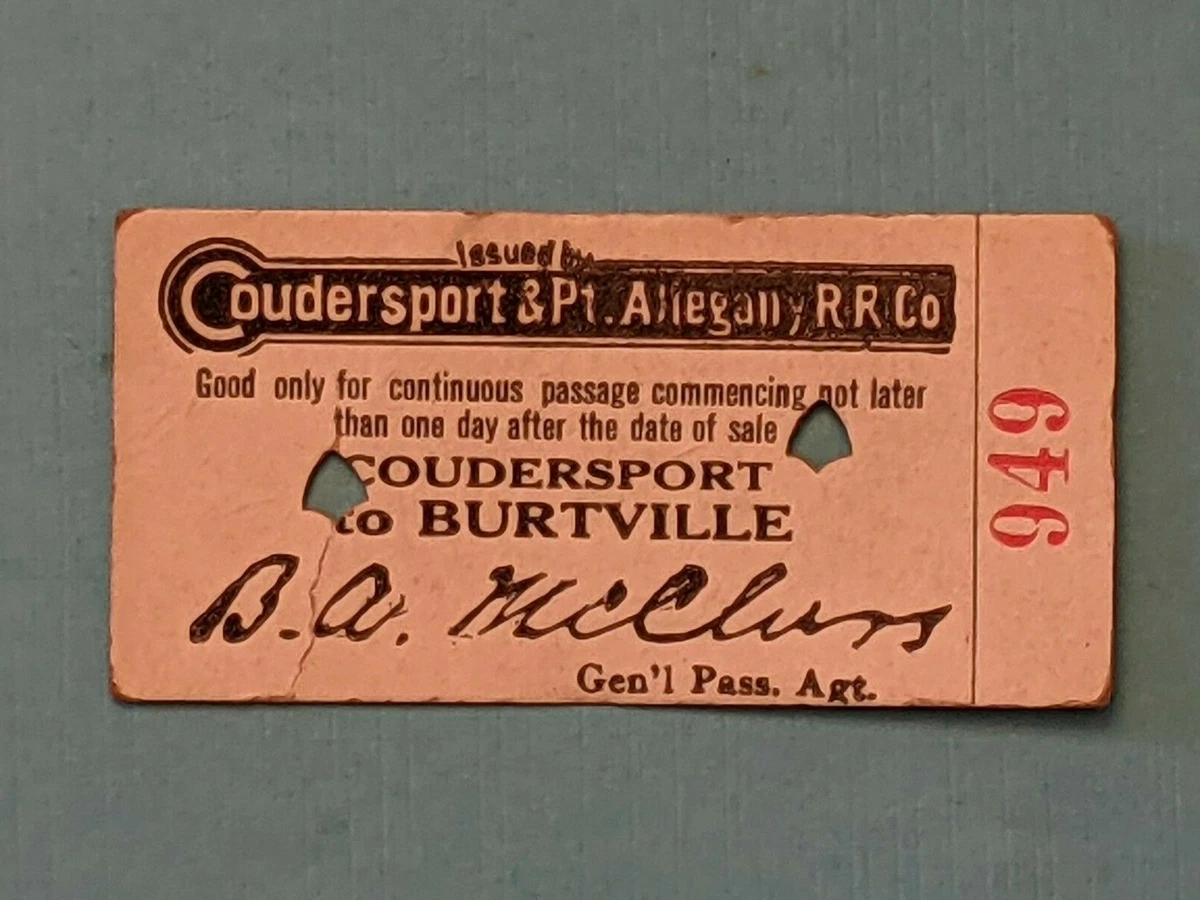 Issued by
Coudersport & Pt. Allegany R.R. Co
Good only for continuous passage commencing not later
than one day after the date of sale
COUDERSPORT
to BURTVILLE
B. A. McClure
Gen'l Pass. Agt.
949